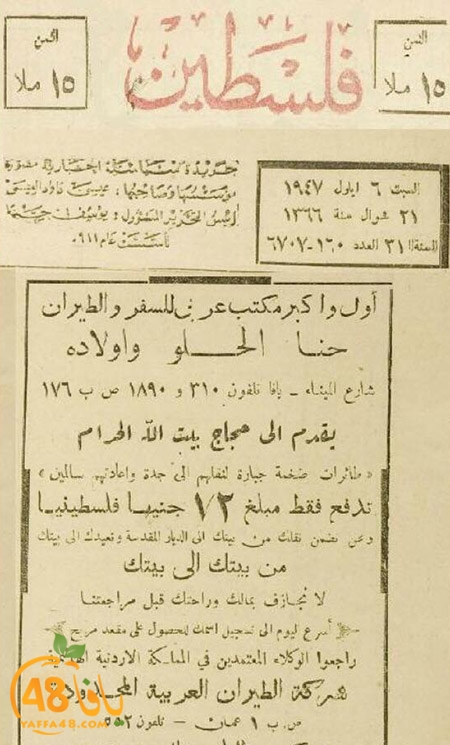 الثمن
١٥ ملا
فلسطين
الثمن
١٥ ملا
السبت ٦ ايلول ١٩٤٧
٢١ شوال سنة ١٣٦٦
السنة ٣١ العدد ١٦٠-٦٧٠٧
جريدة
مؤسسها وصاحبها : عيسى داود العيسى
رئيس التحرير المسؤول : يوسف حنا
تأسست عام ٩١١
أول واكبر مكتب عربي للسفر والطيران
حنا الحلو واولاده
شارع الميناء - يافا تلفون ٣١٠ و ١٨٩٠ ص ب ١٧٦
يقدم الى حجاج بيت الله الحرام
« طائرات ضخمة جبارة لنقلهم الى جدة واعادتهم سالمين »
تدفع فقط مبلغ ٧٢ جنيها فلسطينيا
ونحن نضمن نقلك من بيتك الى الديار المقدسة ونعيدك الى بيتك
من بيتك الى بيتك
لا نجازف بمالك وراحتك قبل مراجعتنا
أسرع اليوم الى تسجيل اسمك للحصول على مقعد مريح
راجعوا الوكلاء المعتمدين في المملكة الاردنية الهاشمية
شركة الطيران العربية المحدودة
ص ب ١ عمان - تلفون ٥٥٢
يافا 48
YAFFA48.COM